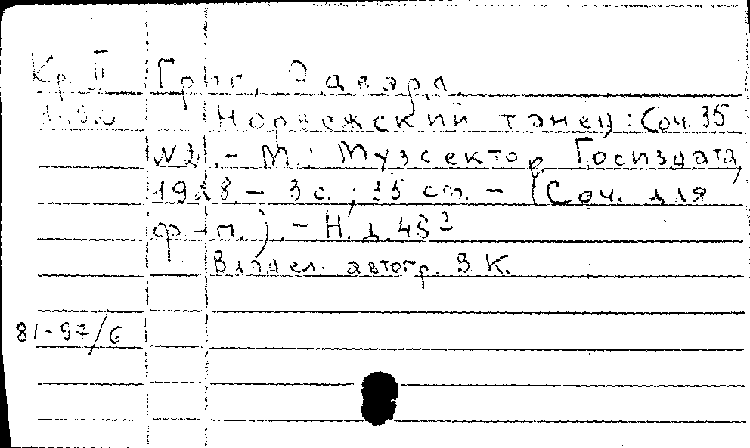 Кр. II Григ, Эдвард.
Норвежский танец: Соч. 35
№2. - М.: Музсектор Госиздата,
1928 - 3 с.; 35 см. - (Соч. для
ф-п.). - Н.д. 452
Владел. автогр. В.К.
81-97/6